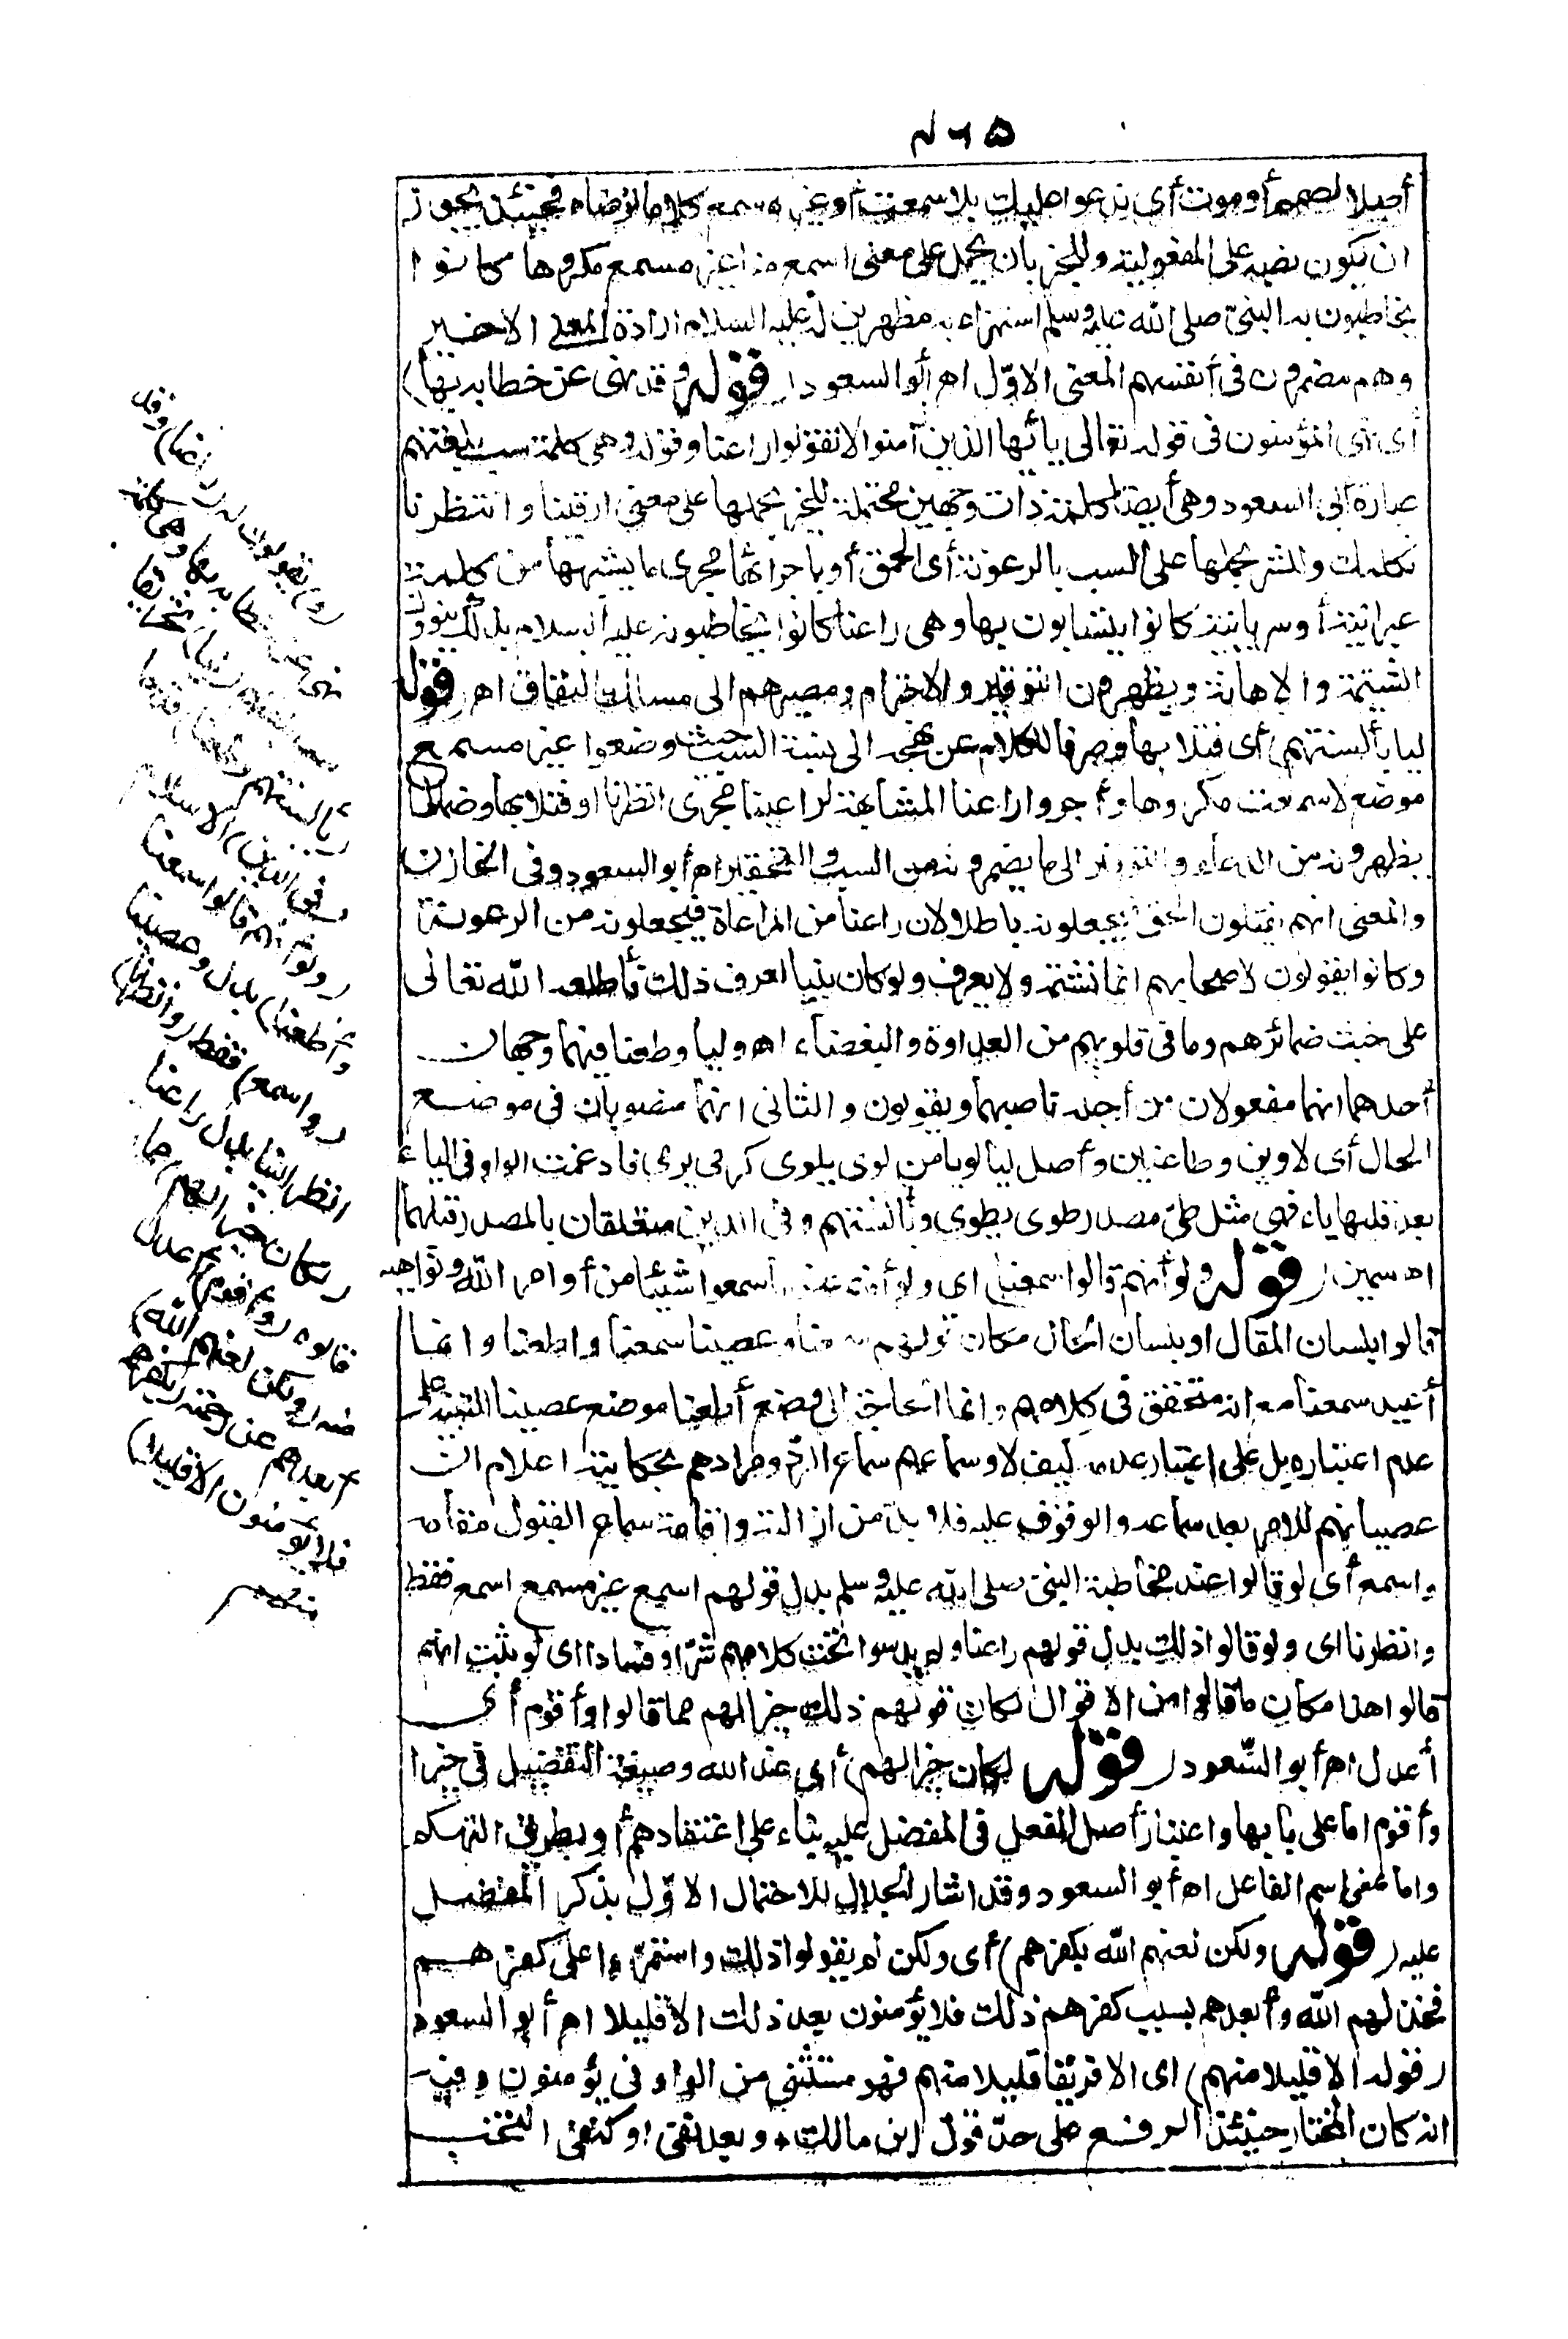 ٤٦٥
أصلا لصمم أو موت أى مدعوا عليك بلا سمعت أو غير مسمع كلاما ترضاه فحينئذ يجوز
ان يكون نصبه على المفعولية وللخير بان يحمل على معنى اسمع منا غير مسمع مكروها كانوا
يخاطبون به النبىّ صلى الله عليه وسلم استهزاء به مظهرين له عليه السلام ارادة المعنى الاخير
وهم مضمرون فى أنفسهم المعنى الاوّل اه أبو السعود (قوله وقد نهى عن خطابه بها)
أى نهى المؤمنون فى قوله تعالى يا أيها الذين آمنوا لا تقولوا راعنا وقوله وهى كلمة سب بلغتهم
عبارة أبى السعود وهى أيضا كلمة ذات وجهين محتملة للخير بحملها على معنى ارقبنا وانتظرنا
نكلمك وللشر بحملها على السب بالرعونة أى الحمق أو باجرائها مجرى ما يشبهها من كلمة
عبرانية أو سريانية كانوا يتسابون بها وهى راعنا كانوا يخاطبونه عليه السلام بذلك ينوون
الشتيمة والاهانة ويظهرون التوقير والاحترام ومصيرهم الى مسالك النفاق اه (قوله
ليا بألسنتهم) أى فتلا بها وصرفا للكلام عن نهجه الى نسبة السب حيث وضعوا غير مسمع
موضع لا سمعت مكروها وأجروا راعنا المشابهة لراعينا مجرى انظرنا او فتلا بها وضما لما
يظهرونه من الدعاء والتوقير الى ما يضمرونه من السب والتحقير اه أبو السعود وفى الخازن
والمعنى انهم يفتلون الحق فيجعلونه باطلا لان راعنا من المراعاة فيجعلونه من الرعونة
وكانوا يقولون لاصحابهم انما نشتمه ولا يعرف ولو كان نبيا لعرف ذلك فأطلعه الله تعالى
على خبث ضمائرهم وما فى قلوبهم من العداوة والبغضاء اه وليا وطعنا فيهما وجهان
أحدهما انهما مفعولان من أجله ناصبهما ويقولون والثانى انهما منصوبان فى موضع
الحال أى لاوين وطاعنين وأصل ليا لويا من لوى يلوى كرمى يرمى فادغمت الواو فى الياء
بعد قلبها ياء فهى مثل طىّ مصدر طوى يطوى وبألسنتهم وفى الدين متعلقان بالمصدر قبلهما
اه سمين (قوله ولو أنهم قالوا سمعنا) اى ولو أنهم عند ما سمعوا شيئا من أوامر الله ونواهيه
قالوا بلسان المقال او بلسان الحال مكان قولهم سمعنا وعصينا سمعنا واطعنا وانما
أعيد سمعنا مع انه متحقق فى كلامهم وانما الحاجة الى وضع أطعنا موضع عصينا للتنبيه على
عدم اعتباره بل على اعتبار عدمه كيف لا وسماعهم سماع الردّ ومرادهم بحكايته اعلام ان
عصيانهم للامر بعد سماعه والوقوف عليه فلا بد من ازالته واقامة سماع القبول مقامه
واسمع أى لو قالوا عند مخاطبة النبىّ صلى الله عليه وسلم بدل قولهم اسمع غير مسمع اسمع فقط
وانظرنا اى ولو قالوا ذلك بدل قولهم راعنا ولم يدسوا تحت كلامهم شرّا وفسادا اى لو ثبت انهم
قالوا هذا مكان ما قالوا من الاقوال لكان قولهم ذلك خيرا لهم مما قالوا وأقوم أى
أعدل اه أبو السّعود (قوله لكان خيرا لهم) أى عند الله وصيغة التفضيل فى خيرا
وأقوم اما على بابها واعتبار أصل الفعل فى المفضل عليه بناء على اعتقادهم أو بطريق التهكم
واما بمعنى اسم الفاعل اه أبو السعود وقد اشار الجلال للاحتمال الاوّل بذكر المفضل
عليه (قوله ولكن لعنهم الله بكفرهم) أى ولكن لم يقولوا ذلك واستمرّوا على كفرهم
فخذلهم الله وأبعدهم بسبب كفرهم ذلك فلا يؤمنون بعد ذلك الا قليلا اه أبو السعود
(قوله الا قليلا منهم) اى الا فريقا قليلا منهم فهو مستثنى من الواو فى يؤمنون وفيه
انه كان المختار حينئذ الرفع على حدّ قول ابن مالك * وبعد نفى او كنفى انتخب
(و) يقولون له (راعنا) وقد
نهى عن خطابه بها وهى كلمة
سب بلغتهم (ليا) تحريفا
(بألسنتهم وطعنا) قدحا
(فى الدين) الاسلام
(ولو أنهم قالوا سمعنا
وأطعنا) بدل وعصينا
(واسمع) فقط (وانظرنا)
انظر الينا بدل راعنا
(لكان خيرا لهم) مما
قالوه (وأقوم) أعدل
منه (ولكن لعنهم الله)
أبعدهم عن رحمته (بكفرهم
فلا يؤمنون الا قليلا)
منهم